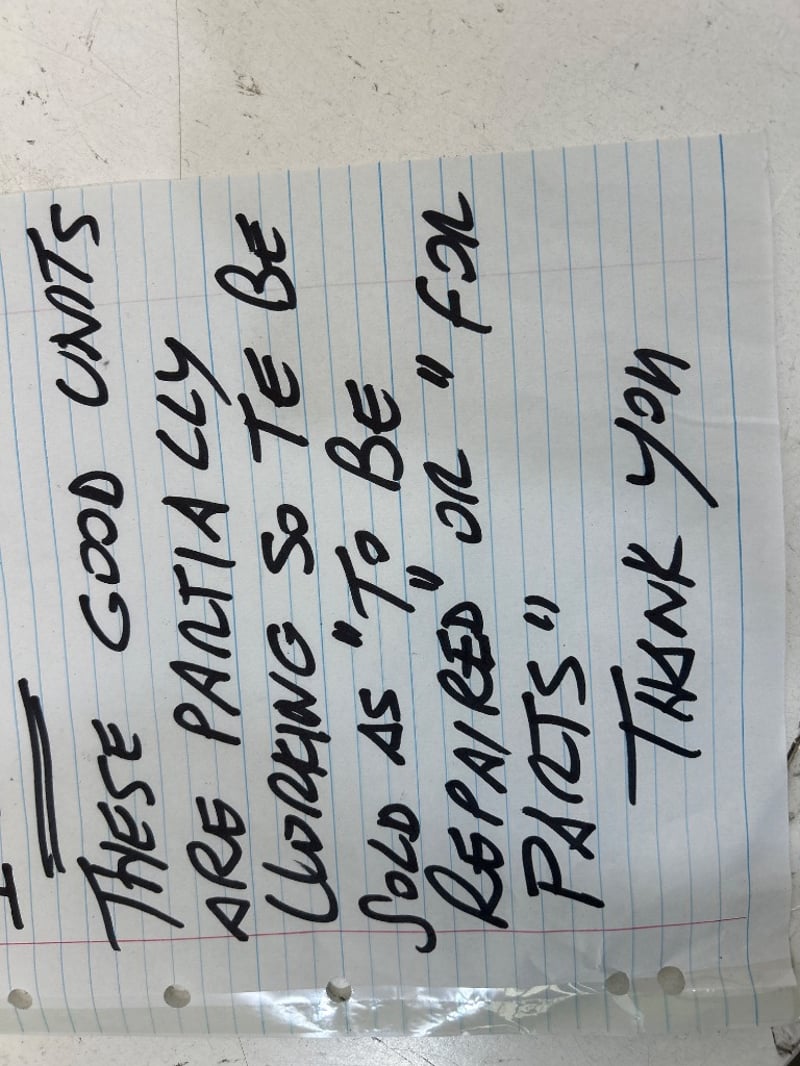 THESE GOOD UNITS
ARE PARTIALLY
WORKING SO TE BE
SOLD AS "TO BE
REPAIRED" OR "FOR
PARTS"
THANK YOU